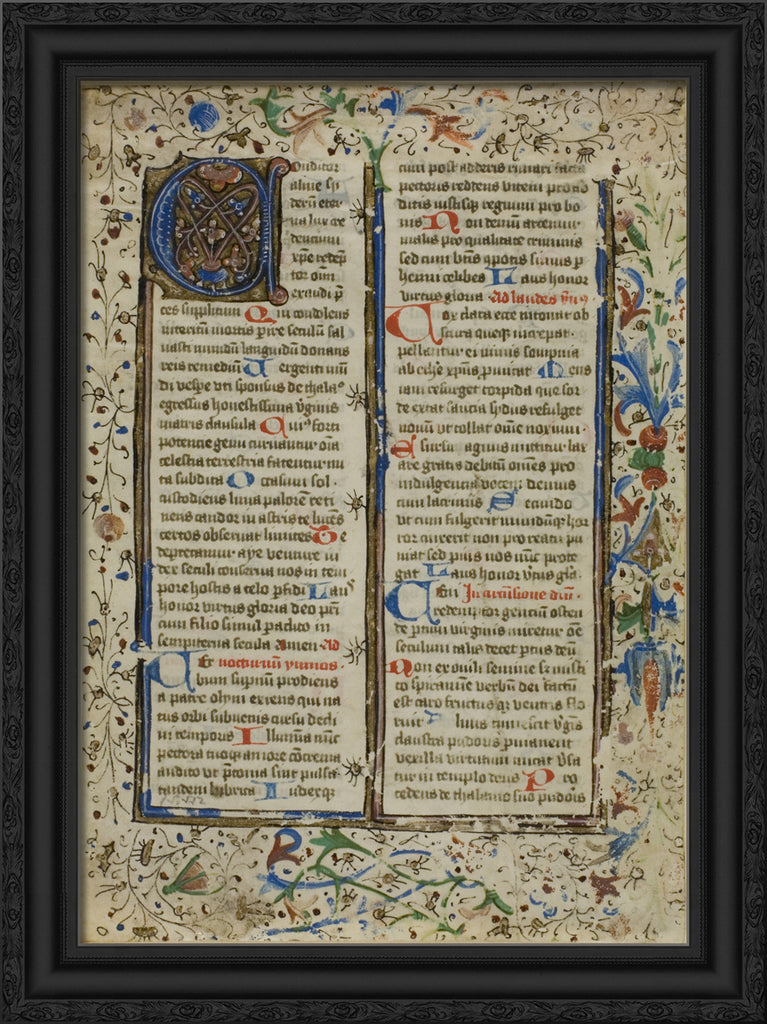 Conditor
alme si
derū eter
na lux cre
dentium
xp̄e redēp
tor oīm
exaudi p̄
ces supplicum Qui condolens
interitū mortis p̄ire seculū sal
uasti mundū languidū donans
reis remediū Uergenti mū
di vesp̄e vti sponsus de thalaº
egressus honestissima v̄ginis
matris clausula Cuiꝰ forti
potentie genu curuantur oīa
celestia terrestria fatentur nu
tu subdita Occasum sol
custodiens luna palorē reti
nens candor in astris relucēs
certos obseruat limites Te
deprecamur aye venture iu
dex seculi conserua nos in tem
pore hostis a telo p̄fidi Lauꝰ
honor virtus gloria deo pr̄i
cum filio simul paclito in
sempiterna secula Amen Ad
nocturnū ymnus
Uerbum sup̄nū prodiens
a patre olym exiens qui na
tus orbi subuenis cursu decli
ui temporis Illumīa nūc
pectora tuoqꝫ amore cōcrema
audito vt p̄conia sint pulsa
tandem lubrica Iudexqꝫ
cum post adderis rimari facta
pectoris reddens vicem pro ab
ditis iustisqꝫ regnum pro bo
nis Non demum artemur
malis pro qualitate criminis
sed cum btīs ꝯpotes simus p̄
henni celibes Laus honor
virtus gloria Ad laudes ymꝰ
Uox clara ecce intonat ob
scura queqꝫ increpat
pellantur eminus sompnia
ab ethe xp̄us p̄micat Mens
iam resurget torpida que sor
de extat saucia sydus refulget
nouū vt tollat om̄e noxium
E sursū agnus mittitur lax
are gratis debitū omēs pro
indulgencia vocem demus
cum lacrimis Secundo
vt cum fulgerit mundūqꝫ hor
ror cinxerit non pro reatu pu
niat sed pius nos nūc prote
gat Laus honor v̄tus gl̄ia
In aduentione dn̄i
Ueni redemptor gencium osten
de p̄tum virginis miretur om̄e
seculum talis decet p̄tus deū
Non ex virili semine s̄ misti
co spiramine verbū dei factū
est caro fructusqꝫ ventris flo
ruit Aluus tumescit v̄gīs
claustra pudoris p̄manent
vexilla virtutum micant v̄sa
tur in templo deus Pro
cedens de thalamo suo pudoris